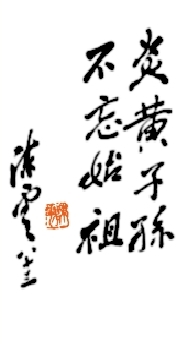 炎黄子孙
不忘始祖
陈云